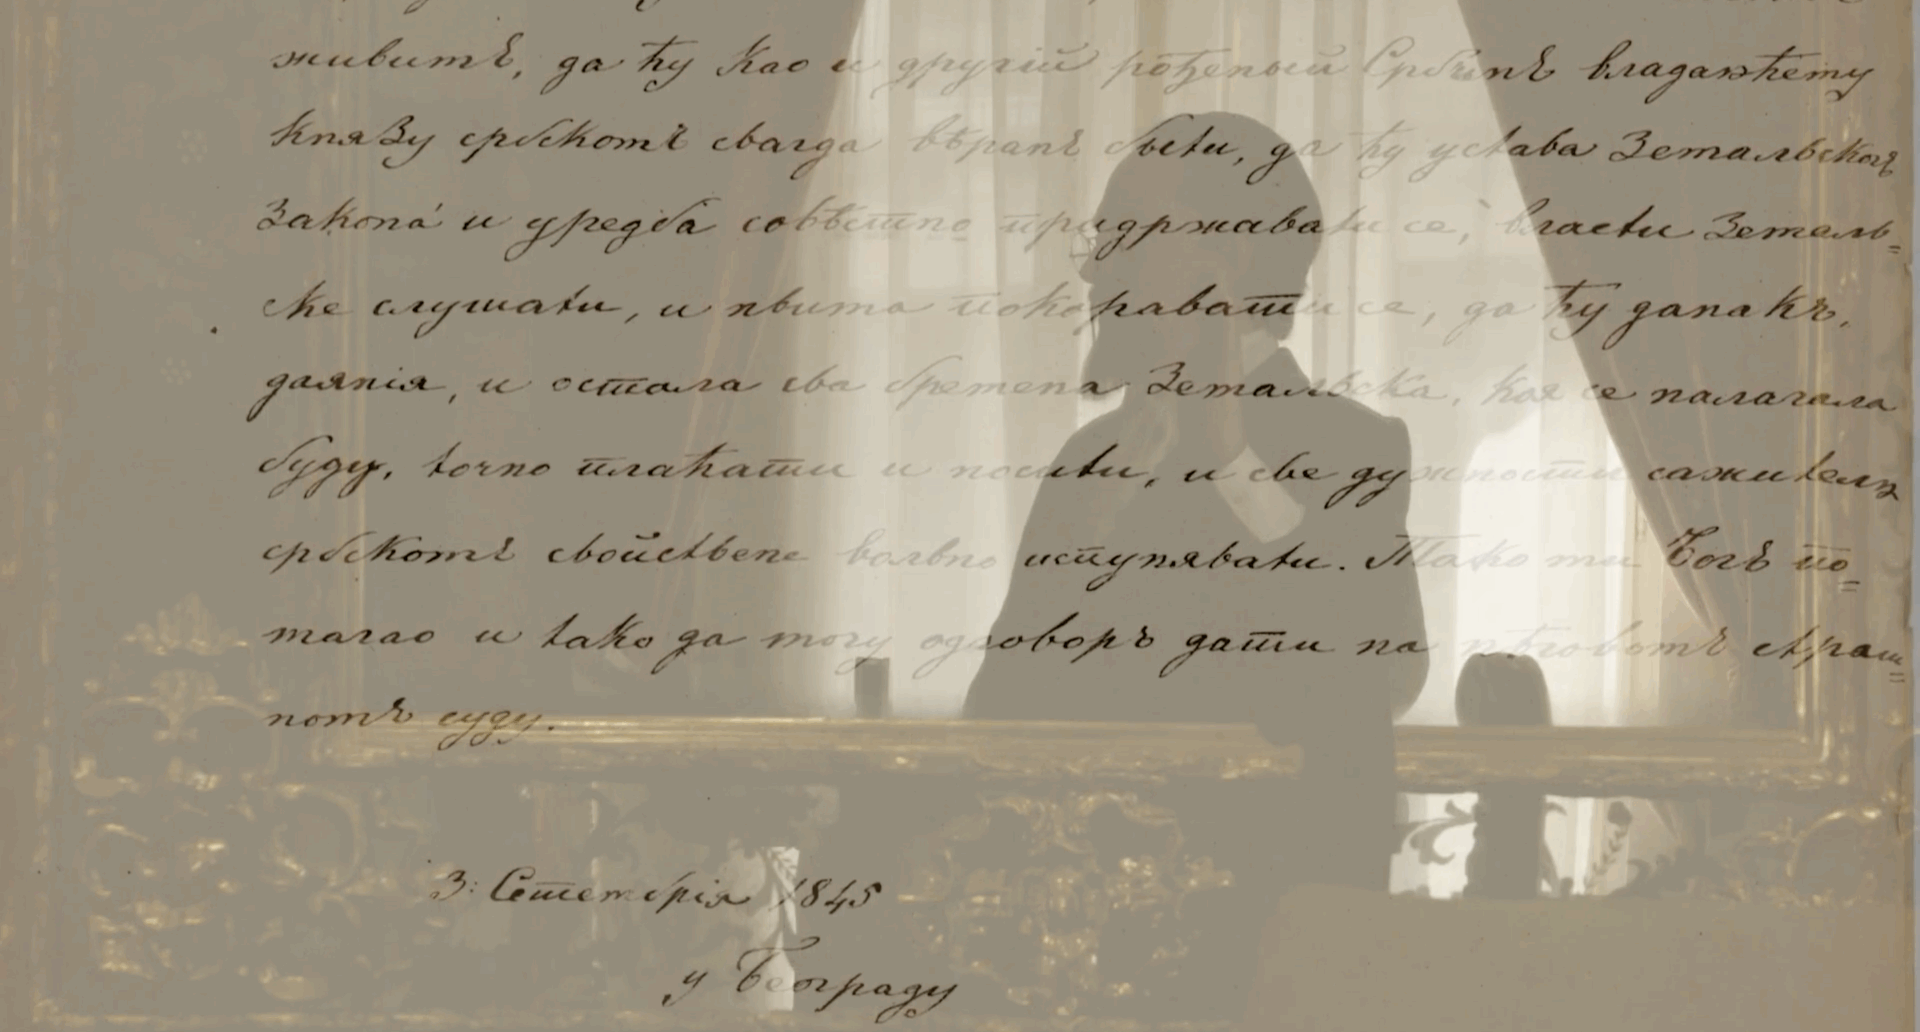 живитъ, да ћу као и другій рођеный Србинъ владаюћему
князу србскомъ свагда вѣранъ быти, да ћу устава Земальскогъ
Закона и уредба совѣстно придржавати се, власти Земаль=
ске слушати, и ньима покоравати се, да ћу данакъ,
даянія, и остала сва бремена Земальска, коя се налагала
буду, točno плаћати и носити, и све дужности сажителя
србскомъ свойствене вольно испунявати. Тако ми Богъ по=
магао и тако да могу одговоръ дати на нѣговомъ страш=
номъ суду.
3: Септембрія 1845
у Београду